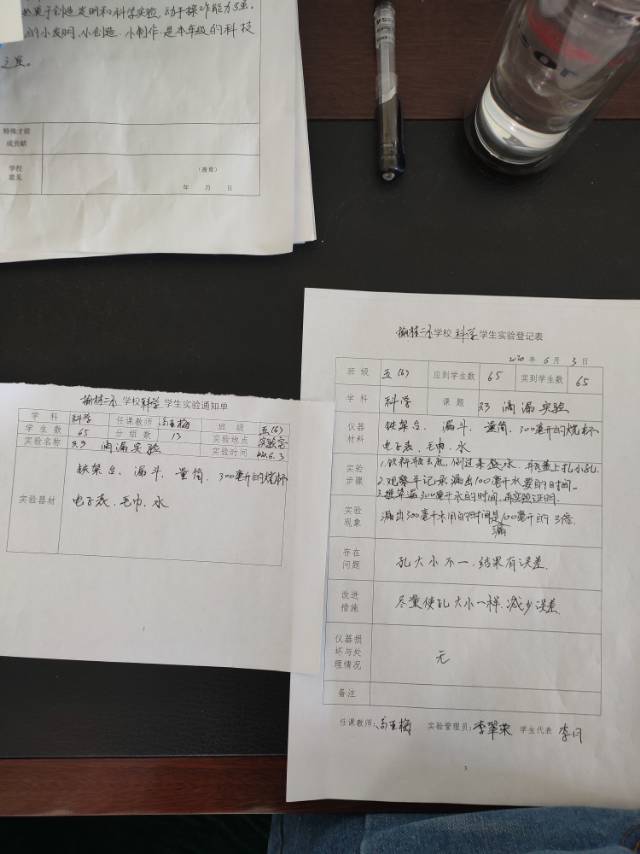 于创造发明和科学实验,动手操作能力强,
的小发明、小创造、小制作是本年级的科技
之星。
特殊才能
或贡献
学校
意见
(盖章)
年 月 日
学校科学学生实验通知单
学 科 科学 任课教师 班 级 五(6)
学 生 数 65 分 组 数 13 实验地点 实验室
实验名称 滴漏实验 实验时间
实验器材
铁架台、漏斗、量筒、300毫升的烧杯
电子表、毛巾、水
学校科学学生实验登记表
2020 年 6 月 3 日
班 级 五(6) 应到学生数 65 实到学生数 65
学 科 科学 课 题 滴漏实验
仪器
材料
铁架台、漏斗、量筒、300毫升的烧杯
电子表、毛巾、水
实验
步骤
1.饮料瓶去底,倒过来盛水,瓶盖上扎小孔。
2.观察并记录漏出100毫升水要的时间。
300毫升水的时间,再实验证明。
实验
现象
漏出300毫升水用的时间是漏100毫升的3倍。
存在
问题
孔大小不一,结果有误差。
改进
措施
尽量使孔大小一样,减少误差。
仪器损
坏与处
理情况
无
备注
任课教师: 实验管理员: 学生代表